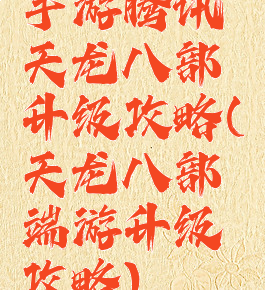 手游腾讯
天龙八部
升级攻略(
天龙八部
端游升级
攻略)